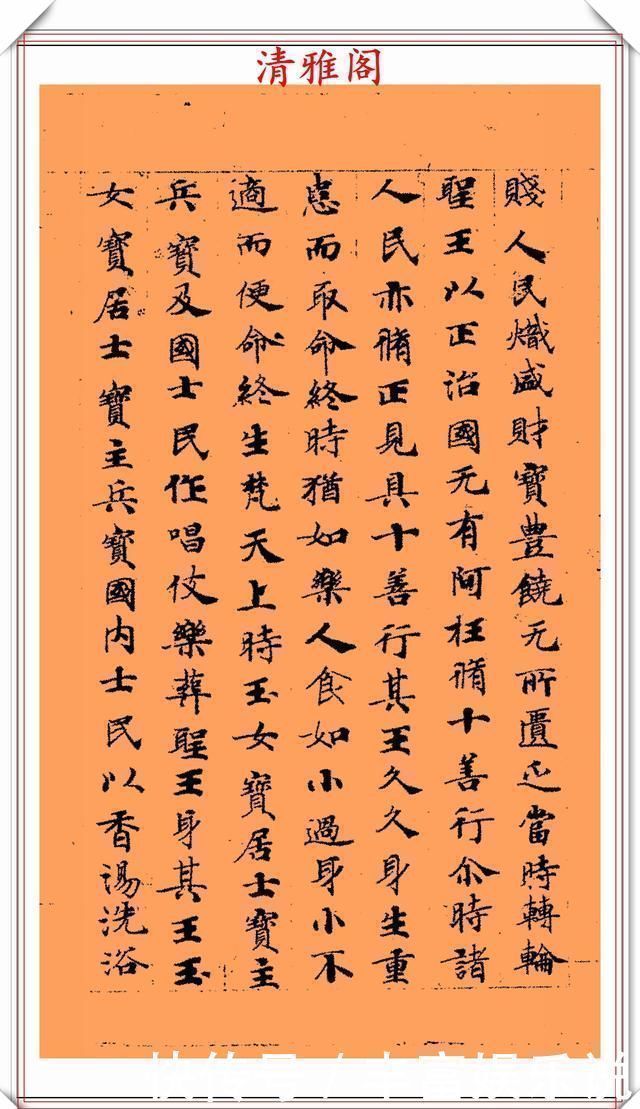 清雅阁
賤人民熾盛財寶豊饒无所遺乏當時轉輪
聖王以正治國无有阿枉脩十善行尒時諸
人民亦脩正見具十善行其王久久身生重
患而取命終時猶如樂人食如小過身小不
適而便命終生梵天上時玉女寶居士寶主
兵寶及國士民作唱伎樂葬聖王身其王玉
女寶居士寶主兵寶國内士民以香湯洗浴